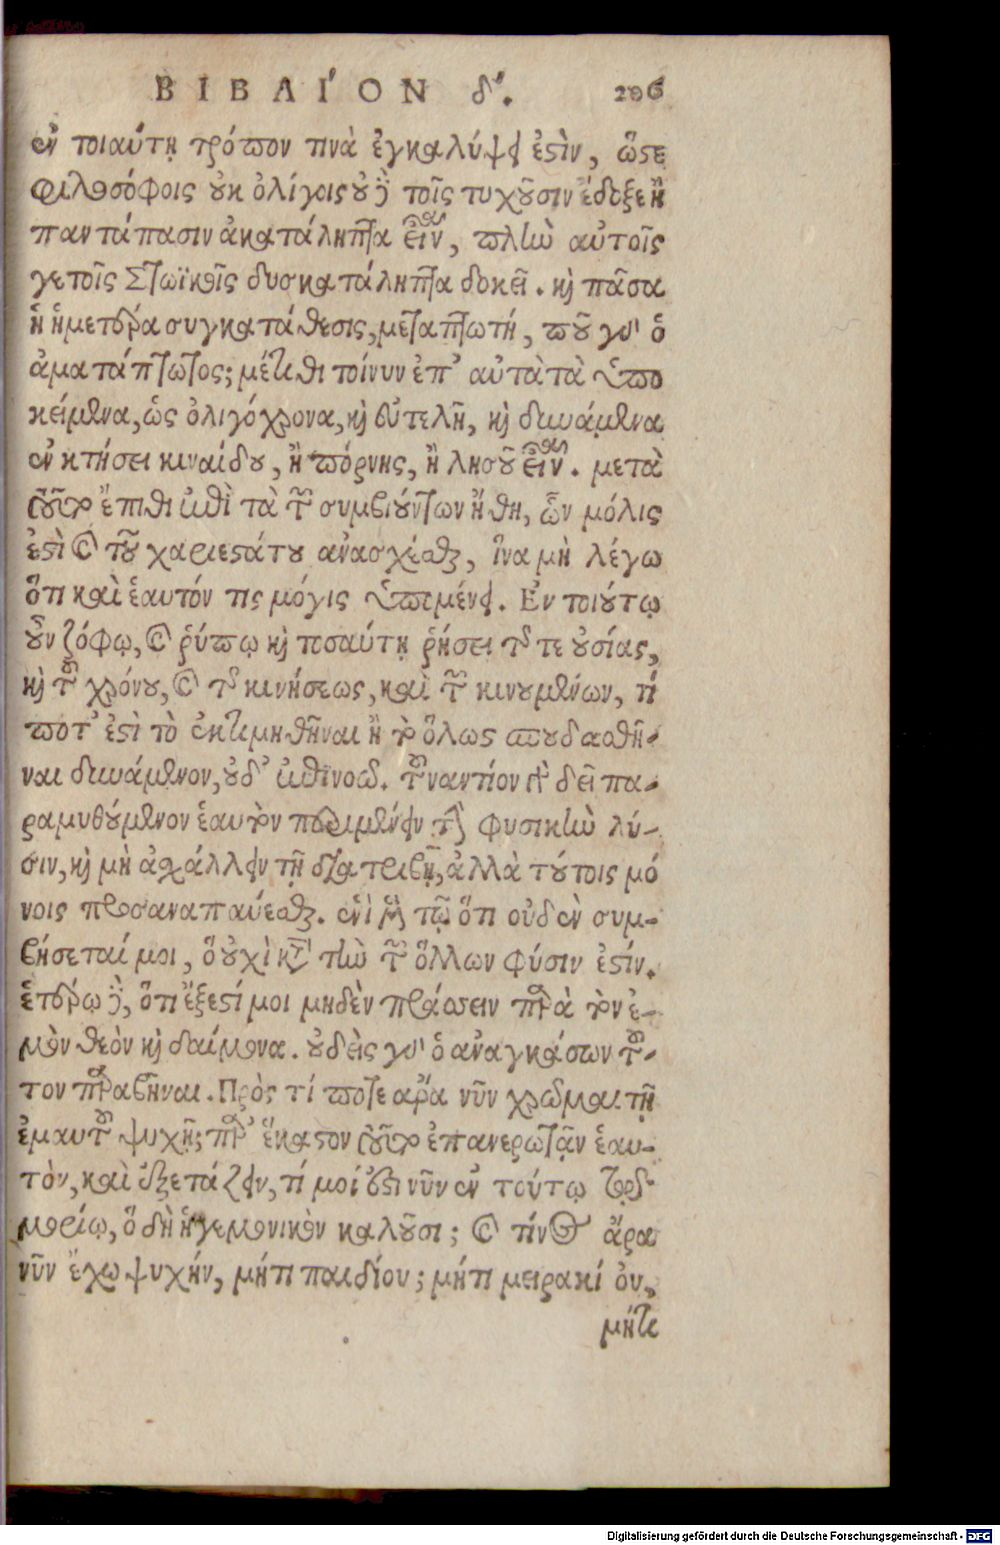 ΒΙΒΛΙ´ΟΝ δ´. 206
ἐν τοιαύτῃ τρόπον τινὰ ἐγκαλύψει ἐστὶν, ὥστε
φιλοσόφοις οὐκ ὀλίγοις οὐδὲ τοῖς τυχοῦσιν ἔδοξε ἢ
παντάπασιν ἀκατάληπτα εἶναι, πλὴν αὐτοῖς
γε τοῖς Στωϊκοῖς δυσκατάληπτα δοκεῖ. καὶ πᾶσα
ἡ ἡμετέρα συγκατάθεσις, μεταπτωτή, ποῦ γὰρ ὁ
ἀματάπτωτος; μέτιθι τοίνυν ἐπ’ αὐτὰ τὰ ὑπο
κείμενα, ὡς ὀλιγόχρονα, καὶ εὐτελῆ, καὶ δυνάμενα
ἐν κτήσει κιναίδου, ἢ πόρνης, ἢ λῃστοῦ εἶναι. μετὰ
τοῦτο ἔπιθι ἐπὶ τὰ τῶν συμβιούντων ἤθη, ὧν μόλις
ἐστὶ καὶ τοῦ χαριεστάτου ἀνασχέσθαι, ἵνα μὴ λέγω
ὅτι καὶ ἑαυτόν τις μόγις ὑπομένει. Ἐν τοιούτῳ
οὖν ζόφῳ, καὶ ῥύπῳ καὶ τοσαύτῃ ῥήσει τῆς τε οὐσίας,
καὶ τοῦ χρόνου, καὶ τῆς κινήσεως, καὶ τῶν κινουμένων, τί
ποτ’ ἐστὶ τὸ ἐκτιμηθῆναι ἢ τὸ ὅλως σπουδασθῆ-
ναι δυνάμενον, οὐδ’ ἐπινοῶ. τοὐναντίον γὰρ δεῖ πα-
ραμυθούμενον ἑαυτὸν περιμένειν τὴν φυσικὴν λύ-
σιν, καὶ μὴ ἀσχάλλειν τῇ διατριβῇ, ἀλλὰ τούτοις μό
νοις προσαναπαύεσθαι. ἑνὶ μὲν τῷ ὅτι οὐδὲν συμ-
βήσεταί μοι, ὃ οὐχὶ κατὰ τὴν τῶν ὅλων φύσιν ἐστίν.
ἑτέρῳ δὲ, ὅτι ἔξεστί μοι μηδὲν πράσσειν παρὰ τὸν ἐ-
μὸν θεὸν καὶ δαίμονα. οὐδεὶς γὰρ ὁ ἀναγκάσων τοῦ-
τον παραβῆναι. Πρὸς τί ποτε ἄρα νῦν χρῶμαι τῇ
ἐμαυτοῦ ψυχῇ; παρ’ ἕκαστον τοῦτο ἐπανερωτᾶν ἑαυ-
τὸν, καὶ ἐξετάζειν, τί μοί ἐστι νῦν ἐν τούτῳ τῷ
μορίῳ, ὃ δὴ ἡγεμονικὸν καλοῦσι; καὶ τίνος ἄρα
νῦν ἔχω ψυχήν, μήτι παιδίου; μήτι μειρακίου,
μήτι
Digitalisierung gefördert durch die Deutsche Forschungsgemeinschaft - DFG